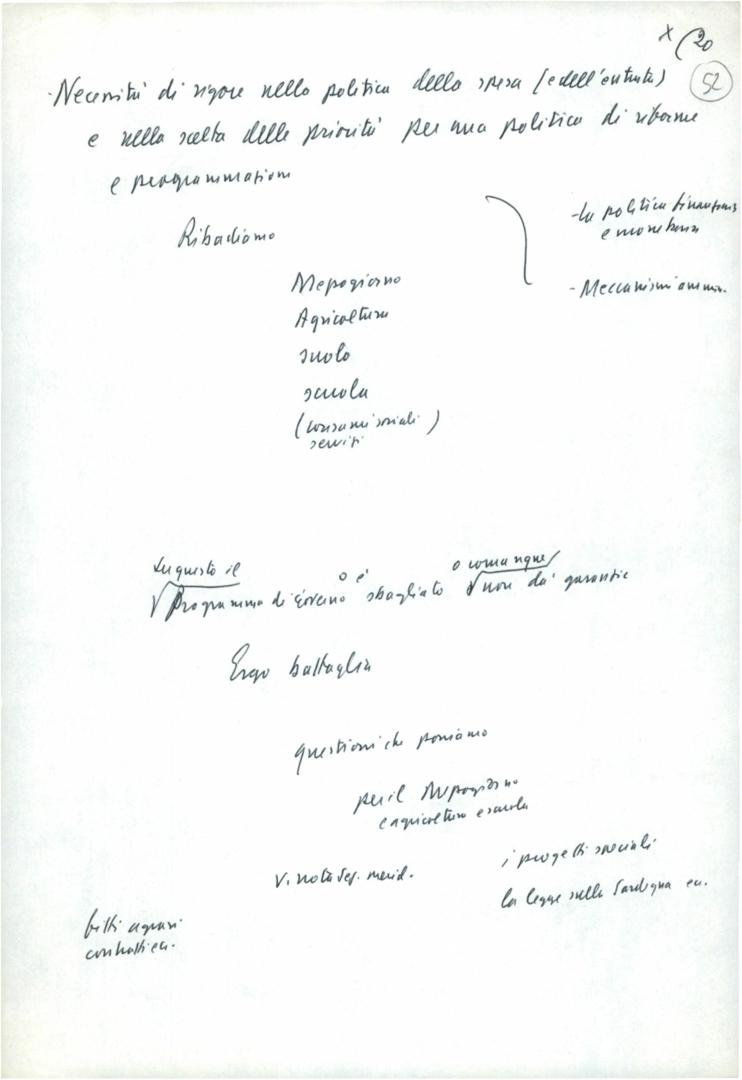 x (20
52
- Necessità di rigore nella politica della spesa (e dell'entrata)
e nella scelta delle priorità per una politica di riforme
e programmazione
Ribadiamo
- la politica finanziaria
e monetaria
- Meccanismi amm.
Mezzogiorno
Agricoltura
suolo
scuola
(consumi sociali)
servizi
Su questo il
programma di governo o è sbagliato o comunque non dà garanzie
Ergo battaglia
questioni che poniamo
per il Mezzogiorno
e agricoltura e scuola
i progetti speciali
V. nota Sez. merid.
la legge sulla Sardegna ec.
fitti agrari
contratti ec.